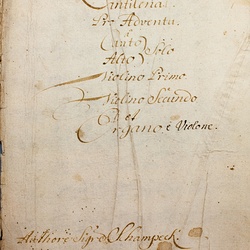 Cantilena
Pro Adventu.
à
Canto Solo
Alto
Violino Primo
Violino Secundo
et
Organo è Violone.
Authore Sigre